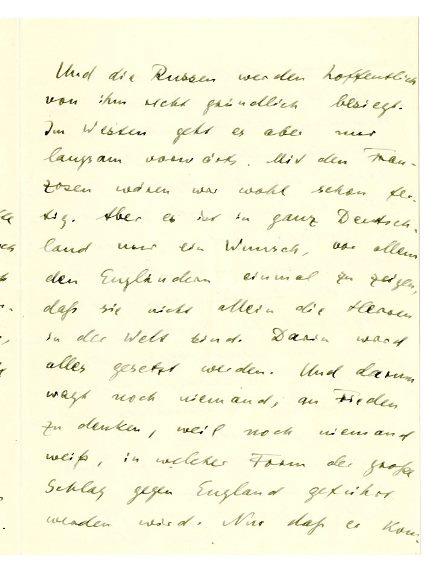 Und die Russen werden hoffentlich
von ihm recht gründlich besiegt.
Im Westen geht es aber nur
langsam vorwärts. Mit den Fran-
zosen wären wir wohl schon fer-
tig. Aber es ist in ganz Deutsch-
land nur ein Wunsch, vor allem
den Engländern einmal zu zeigen,
daß sie nicht allein die Herren
in der Welt sind. Darin ward
alles gesetzt werden. Und darum
wagt noch niemand, an Frieden
zu denken, weil noch niemand
weiß, in welcher Form der große
Schlag gegen England geführt
werden wird. Nur daß er kom-